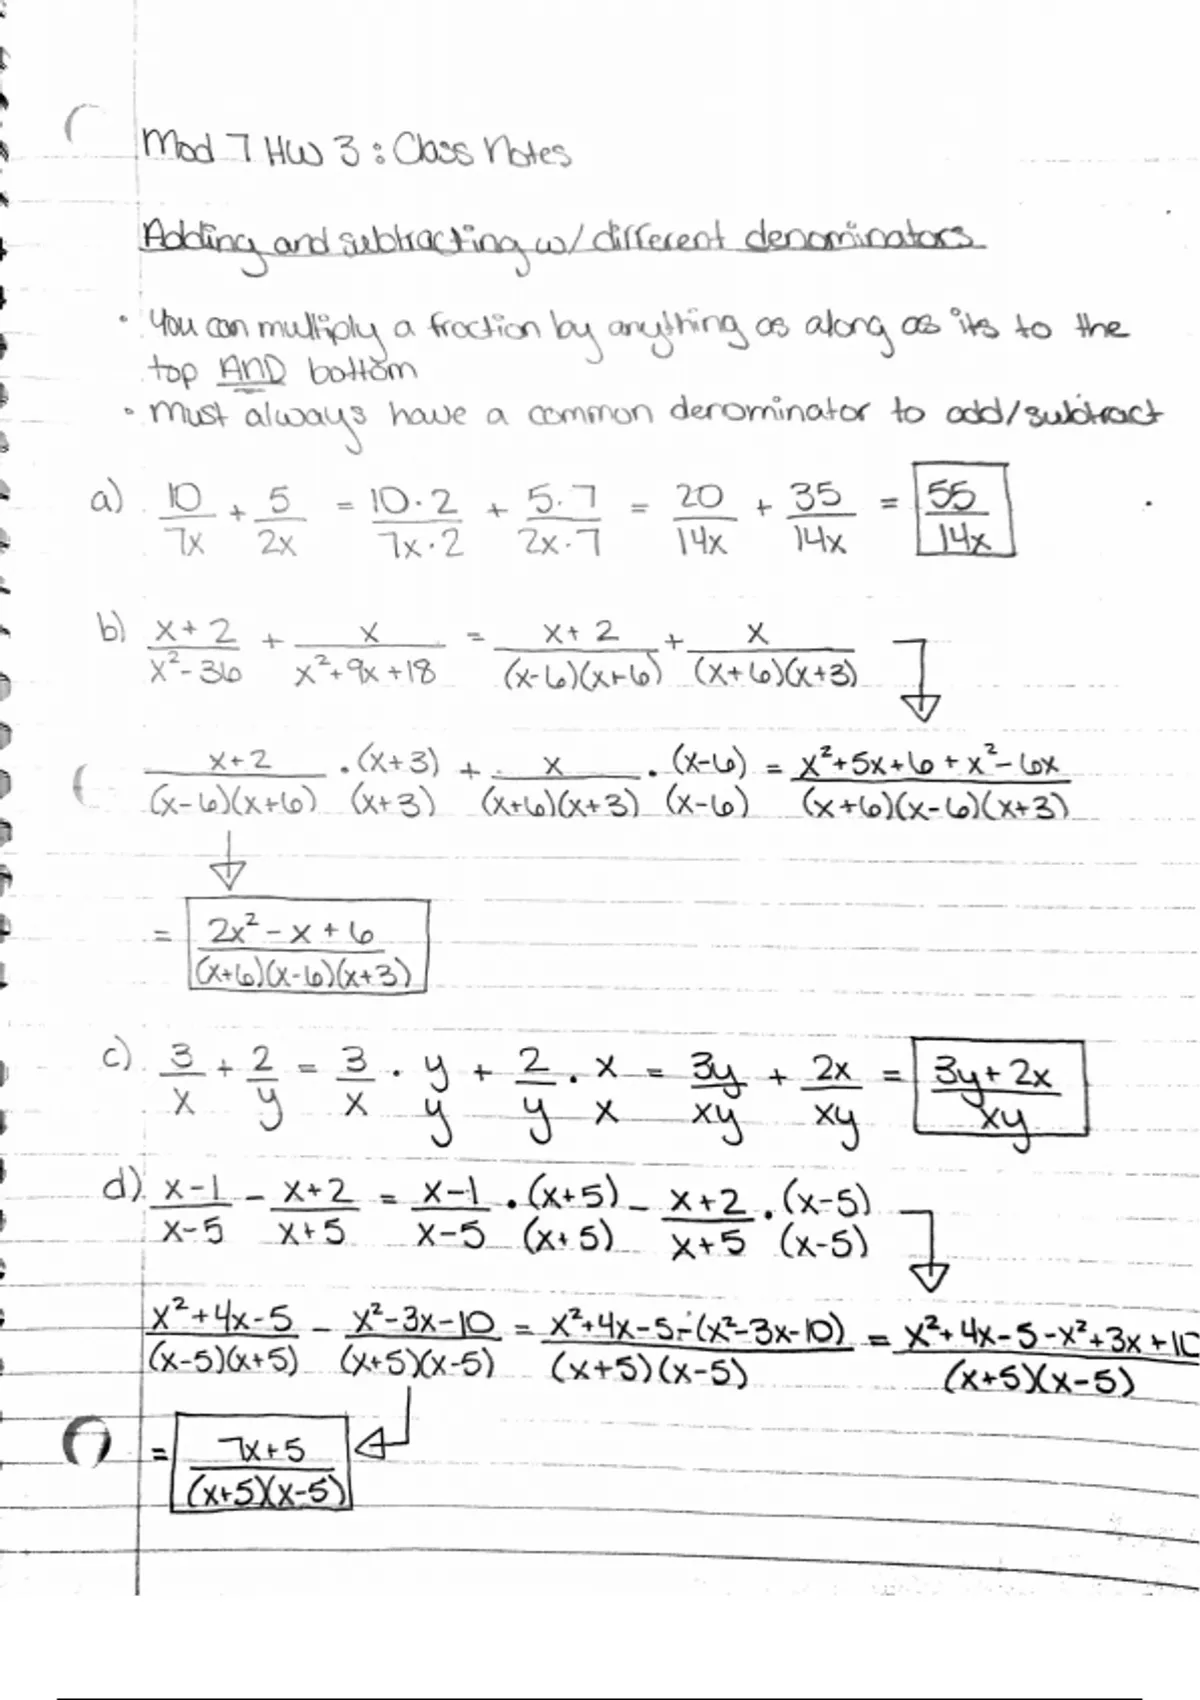 Mod 7 HW 3: Class Notes
Adding and subtracting w/ different denominators
• You can multiply a fraction by anything as along as its to the
top AND bottom
• Must always have a common denominator to add/subtract
a) 10/7x + 5/2x = 10·2/7x·2 + 5·7/2x·7 = 20/14x + 35/14x = 55/14x
b) x+2/x²-36 + x/x²+9x+18 = x+2/(x-6)(x+6) + x/(x+6)(x+3)
x+2/(x-6)(x+6) · (x+3)/(x+3) + x/(x+6)(x+3) · (x-6)/(x-6) = x²+5x+6+x²-6x/(x+6)(x-6)(x+3)
= 2x²-x+6/(x+6)(x-6)(x+3)
c) 3/x + 2/y = 3/x · y/y + 2/y · x/x = 3y/xy + 2x/xy = 3y+2x/xy
d) x-1/x-5 - x+2/x+5 = x-1/x-5 · (x+5)/(x+5) - x+2/x+5 · (x-5)/(x-5)
x²+4x-5/(x-5)(x+5) - x²-3x-10/(x+5)(x-5) = x²+4x-5-(x²-3x-10)/(x+5)(x-5) = x²+4x-5-x²+3x+10/(x+5)(x-5)
= 7x+5/(x+5)(x-5)